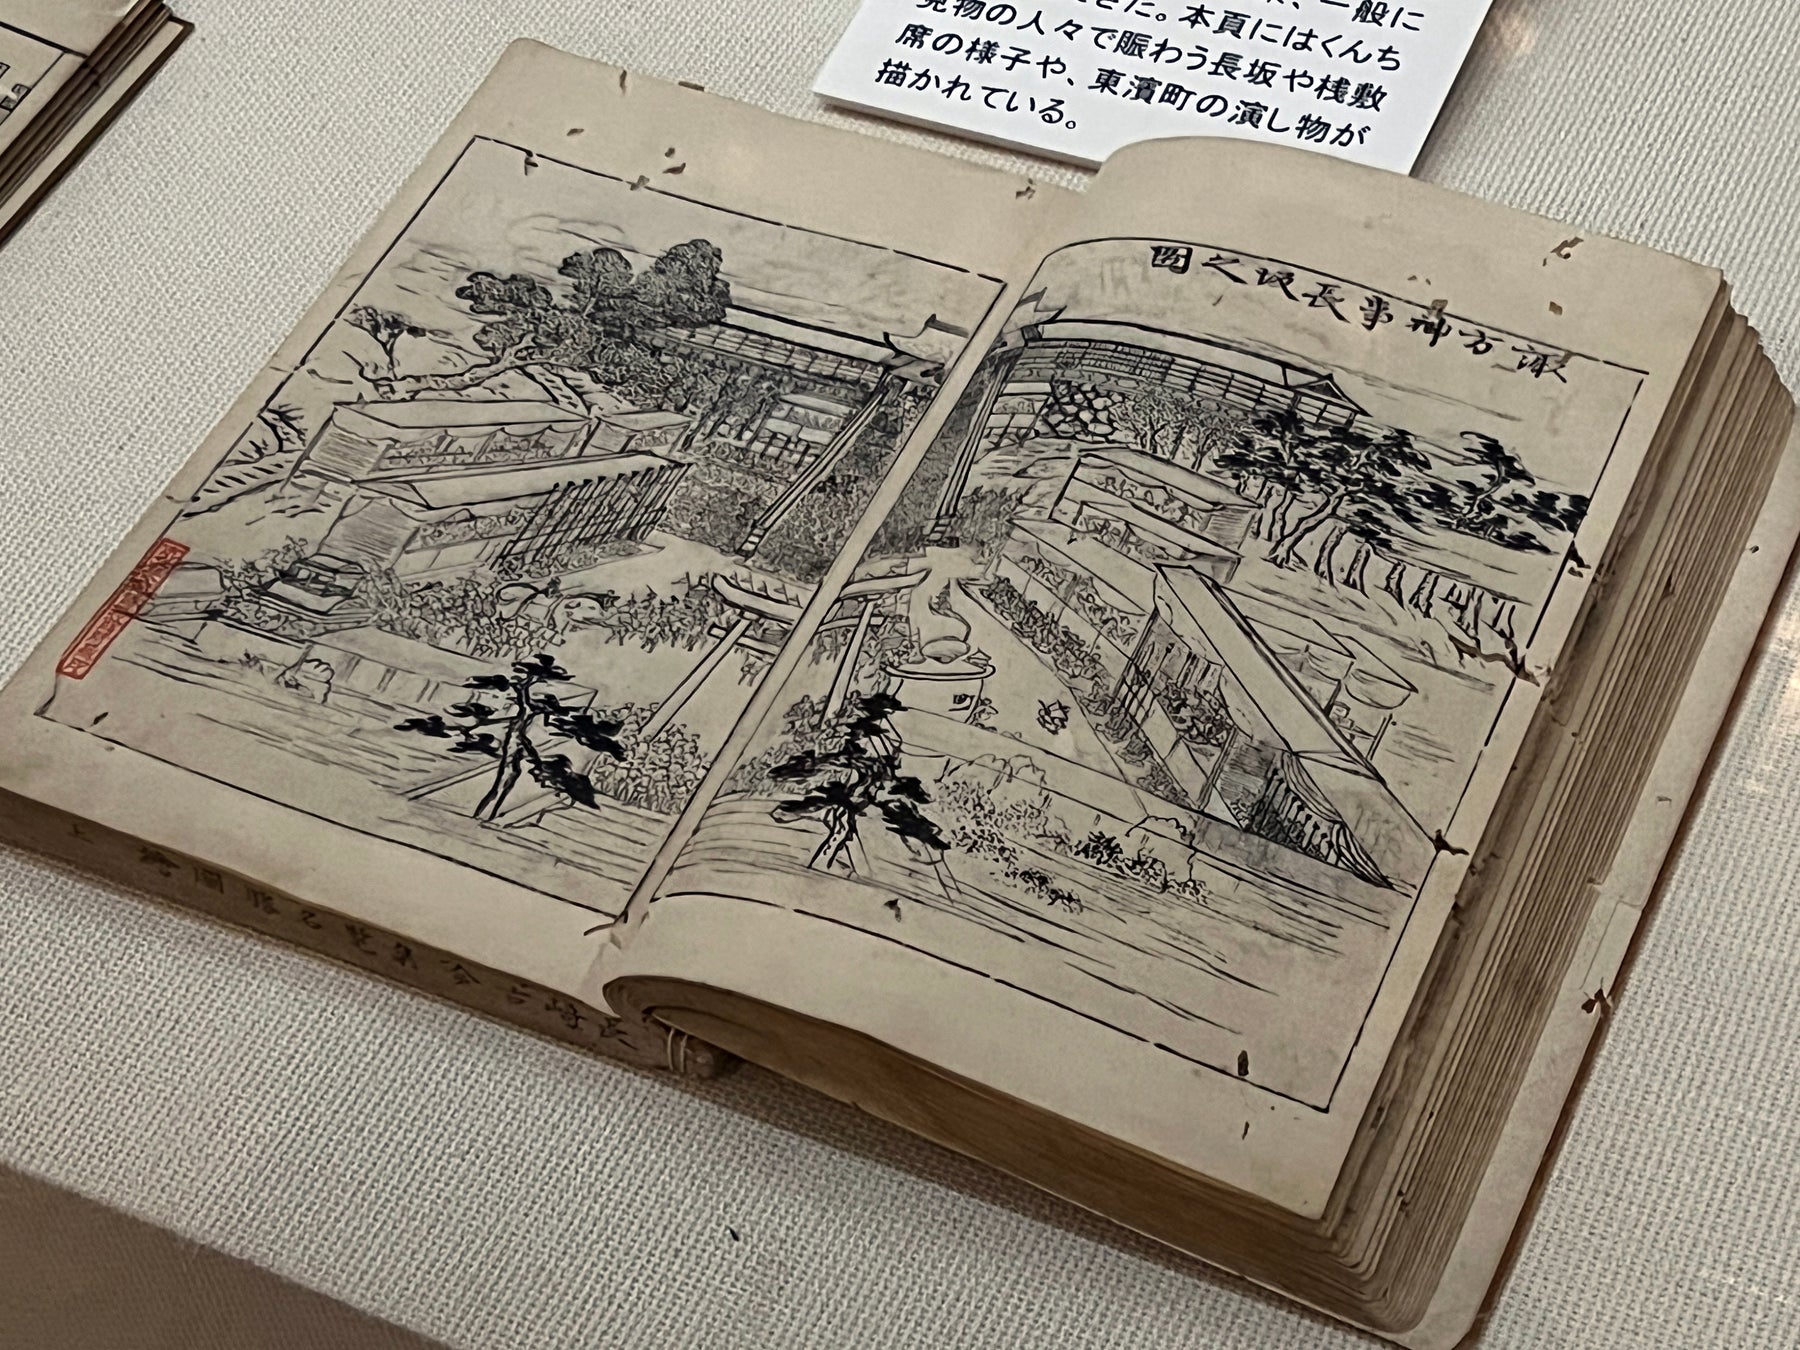 、一般に
きた。本頁にはくんち
見物の人々で賑わう長坂や桟敷
席の様子や、東濱町の演し物が
描かれている。
諏方神事長坂之圖
町
長崎古今集覧名勝圖繪 上